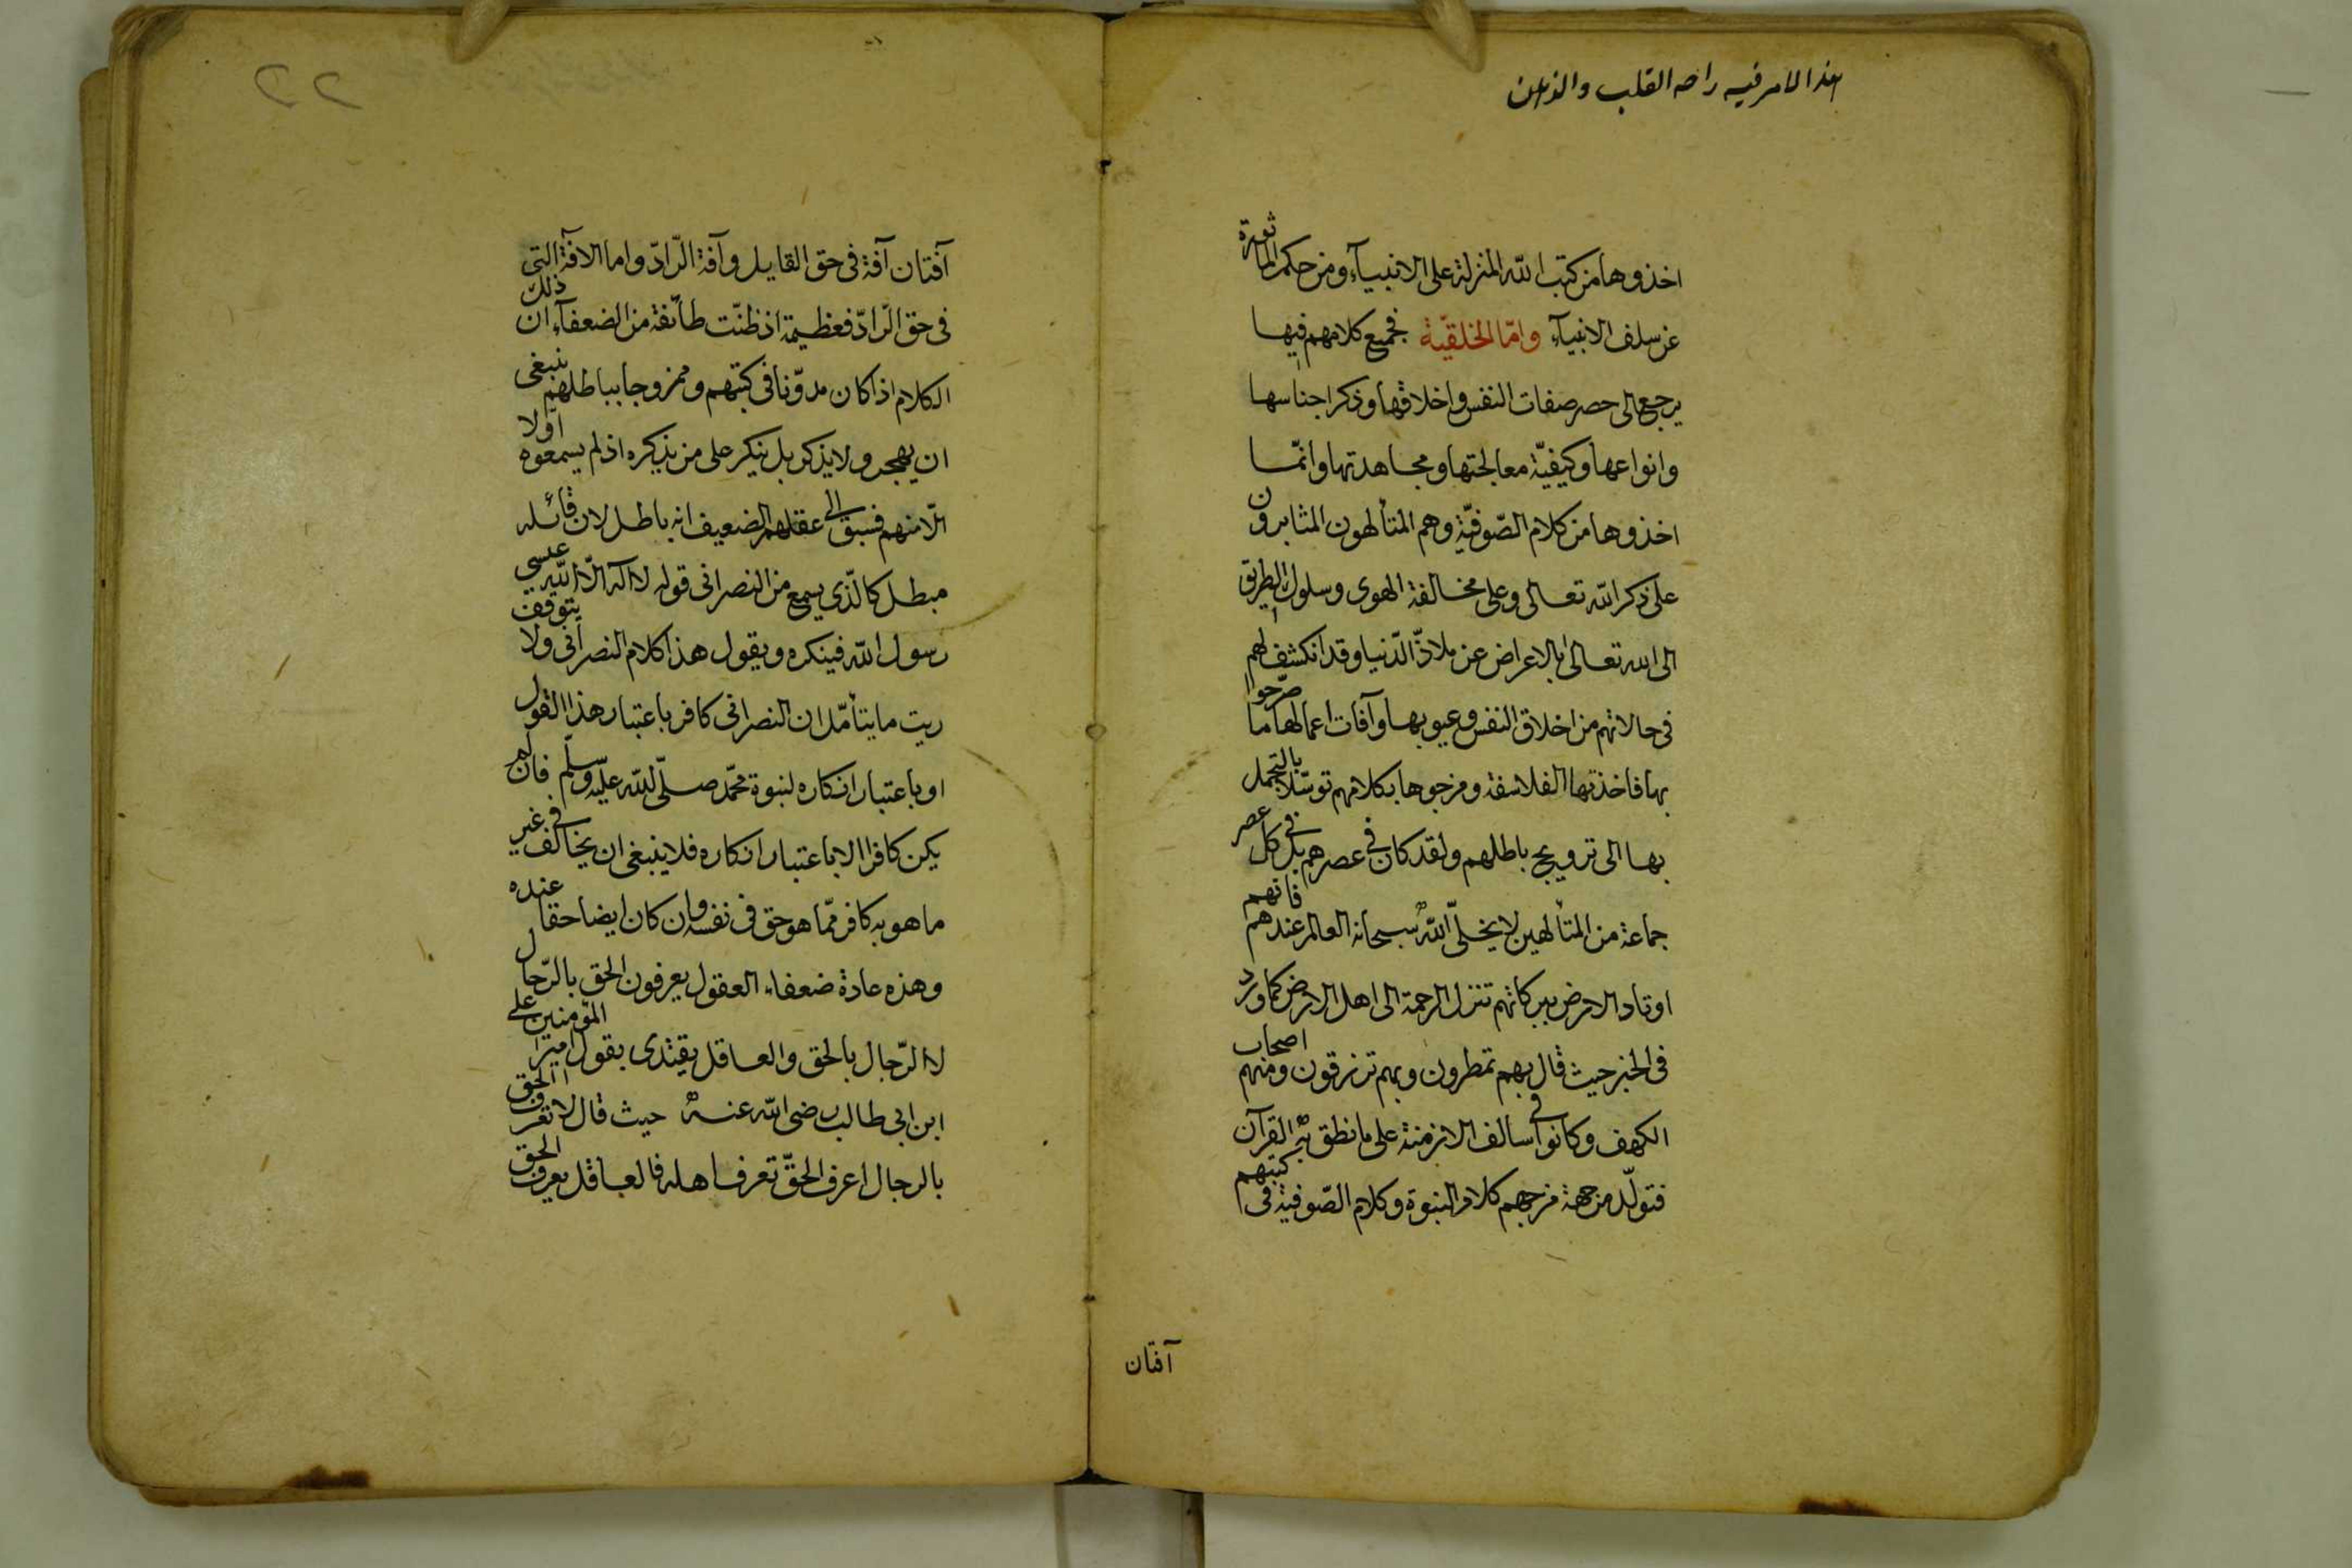 هذا الامر فيه راحة القلب والذهن
اخذوها من كتب الله المنزلة على الانبيآء ومن حكم المأثورة
عن سلف الانبيآء وامّا الخلقيّة فجميع كلامهم فيها
يرجع الى حصر صفات النفس واخلاقها وذكر اجناسها
وانواعها وكيفيّة معالجتها ومجاهدتها وانّما
اخذوها من كلام الصّوفيّة وهم المتألهون المثابرون
على ذكر الله تعالى وعلى مخالفة الهوى وسلوك الطريق
الى الله تعالى بالاعراض عن ملاذّ الدّنيا وقد انكشف لهم
فى حالاتهم من اخلاق النفس وعيوبها وآفات اعمالها ما صرّحوا
بها فاخذتها الفلاسفة ومزجوها بكلامهم توسّلا بالتجمل
بها الى ترويج باطلهم ولقد كان فى عصرهم بل فى كل عصر
جماعة من المتألهين لا يخلّى الله سبحانه العالم عندهم فانهم
اوتاد الارض ببركاتهم تنزل الرحمة الى اهل الارض كما ورد
فى الخبر حيث قال بهم تمطرون وبهم ترزقون ومنهم اصحاب
الكهف وكانوا فى سالف الازمنة على ما نطق به القرآن
فتولّد من جهة مزجهم كلام النبوة وكلام الصّوفية فى كتبهم
آفتان
آفتان آفة فى حق القايل وآفة الرّادّ واما الافة التى
فى حق الرّادّ فعظيمة اذ ظنّت طآئفة من الضعفآء ان ذلك
الكلام اذا كان مدوّنا فى كتبهم وممزوجا بباطلهم ينبغى
ان يهجر ولا يذكر بل ينكر على من يذكره اذ لم يسمعوه اولا
الّا منهم فسبق الى عقلهم الضعيف انه باطل لان قائله
مبطل كالّذى يسمع من النصرانى قوله لا اله الّا الله عيسى
رسول الله فينكره ويقول هذا كلام النصرانى ولا يتوقف
ريث ما يتأمّل ان النصرانى كافر باعتبار هذا القول
او باعتبار انكاره لنبوة محمّد صلّى الله عليه وسلّم فان لم
يكن كافرا الا باعتبار انكاره فلا ينبغى ان يخالف فى غير
ما هو به كافر ممّا هو حق فى نفسه وان كان ايضا حقا عنده
وهذه عادة ضعفاء العقول يعرفون الحق بالرّجال
لا الرّجال بالحق والعاقل يقتدى بقول امير المؤمنين على
ابن ابى طالب رضى الله عنه حيث قال لا تعرف الحق
بالرجال اعرف الحقّ تعرف اهله فالعاقل يعرف الحق